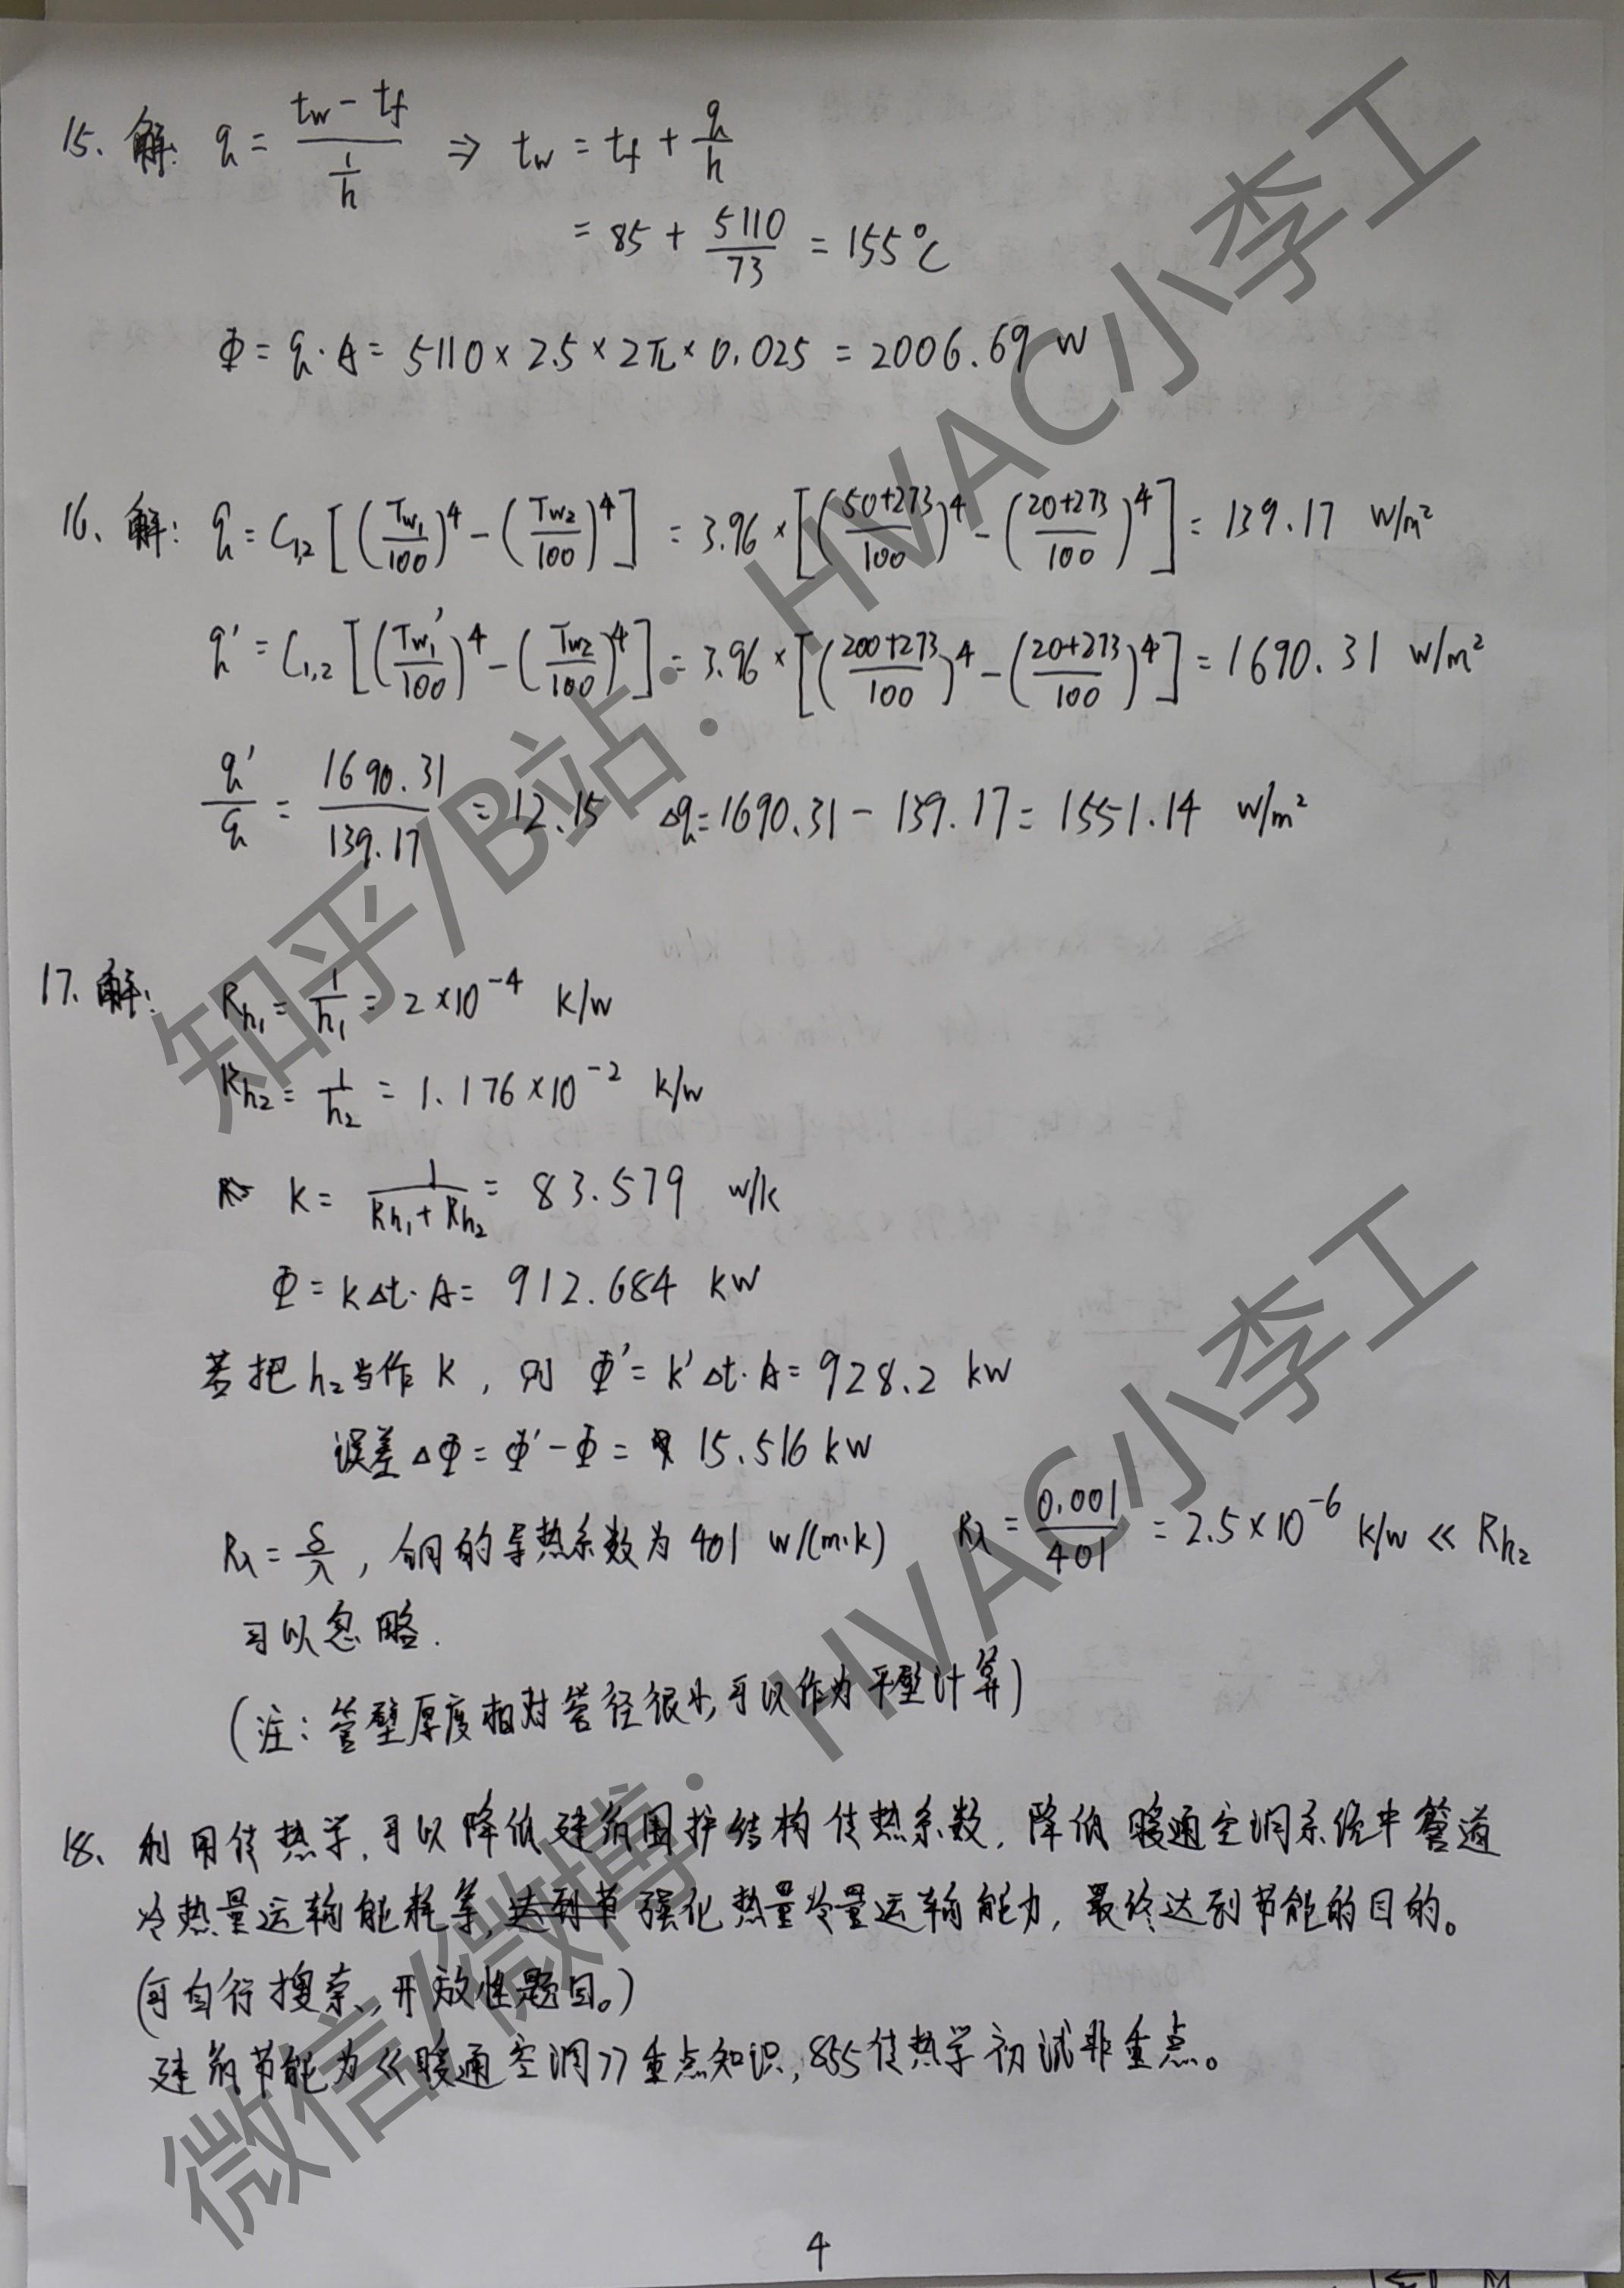 15、解: q = (tw - tf)/(1/h) ⇒ tw = tf + q/h
= 85 + 5110/73 = 155℃
Φ = q·A = 5110 × 2.5 × 2π × 0.025 = 2006.69 W
16、解: q = C1,2 [(Tw1/100)^4 - (Tw2/100)^4] = 3.96 × [((50+273)/100)^4 - ((20+273)/100)^4] = 139.17 W/m²
q' = C1,2 [(Tw1'/100)^4 - (Tw2/100)^4] = 3.96 × [((200+273)/100)^4 - ((20+273)/100)^4] = 1690.31 W/m²
q'/q = 1690.31/139.17 = 12.15 Δq = 1690.31 - 139.17 = 1551.14 W/m²
17、解: Rh1 = 1/h1 = 2×10^-4 K/W
Rh2 = 1/h2 = 1.176×10^-2 K/W
K = 1/(Rh1 + Rh2) = 83.579 W/K
Φ = KΔt·A = 912.684 kW
若把h2当作K, 则 Φ' = K'Δt·A = 928.2 kW
误差 ΔΦ = Φ' - Φ = 15.516 kW
Rλ = δ/λ, 铜的导热系数为401 W/(m·K) Rλ = 0.001/401 = 2.5×10^-6 K/W ≪ Rh2
可以忽略.
(注: 管壁厚度相对管径很小,可以作为平壁计算)
18、利用传热学,可以降低建筑围护结构传热系数,降低暖通空调系统中管道
冷热量运输能耗等,达到节强化热量冷量运输能力,最终达到节能的目的。
(可自行搜索,开放性题目。)
建筑节能为《暖通空调》重点知识,855传热学初试非重点。
4
知乎/B站:HVAC小李工
微信/微博:HVAC小李工